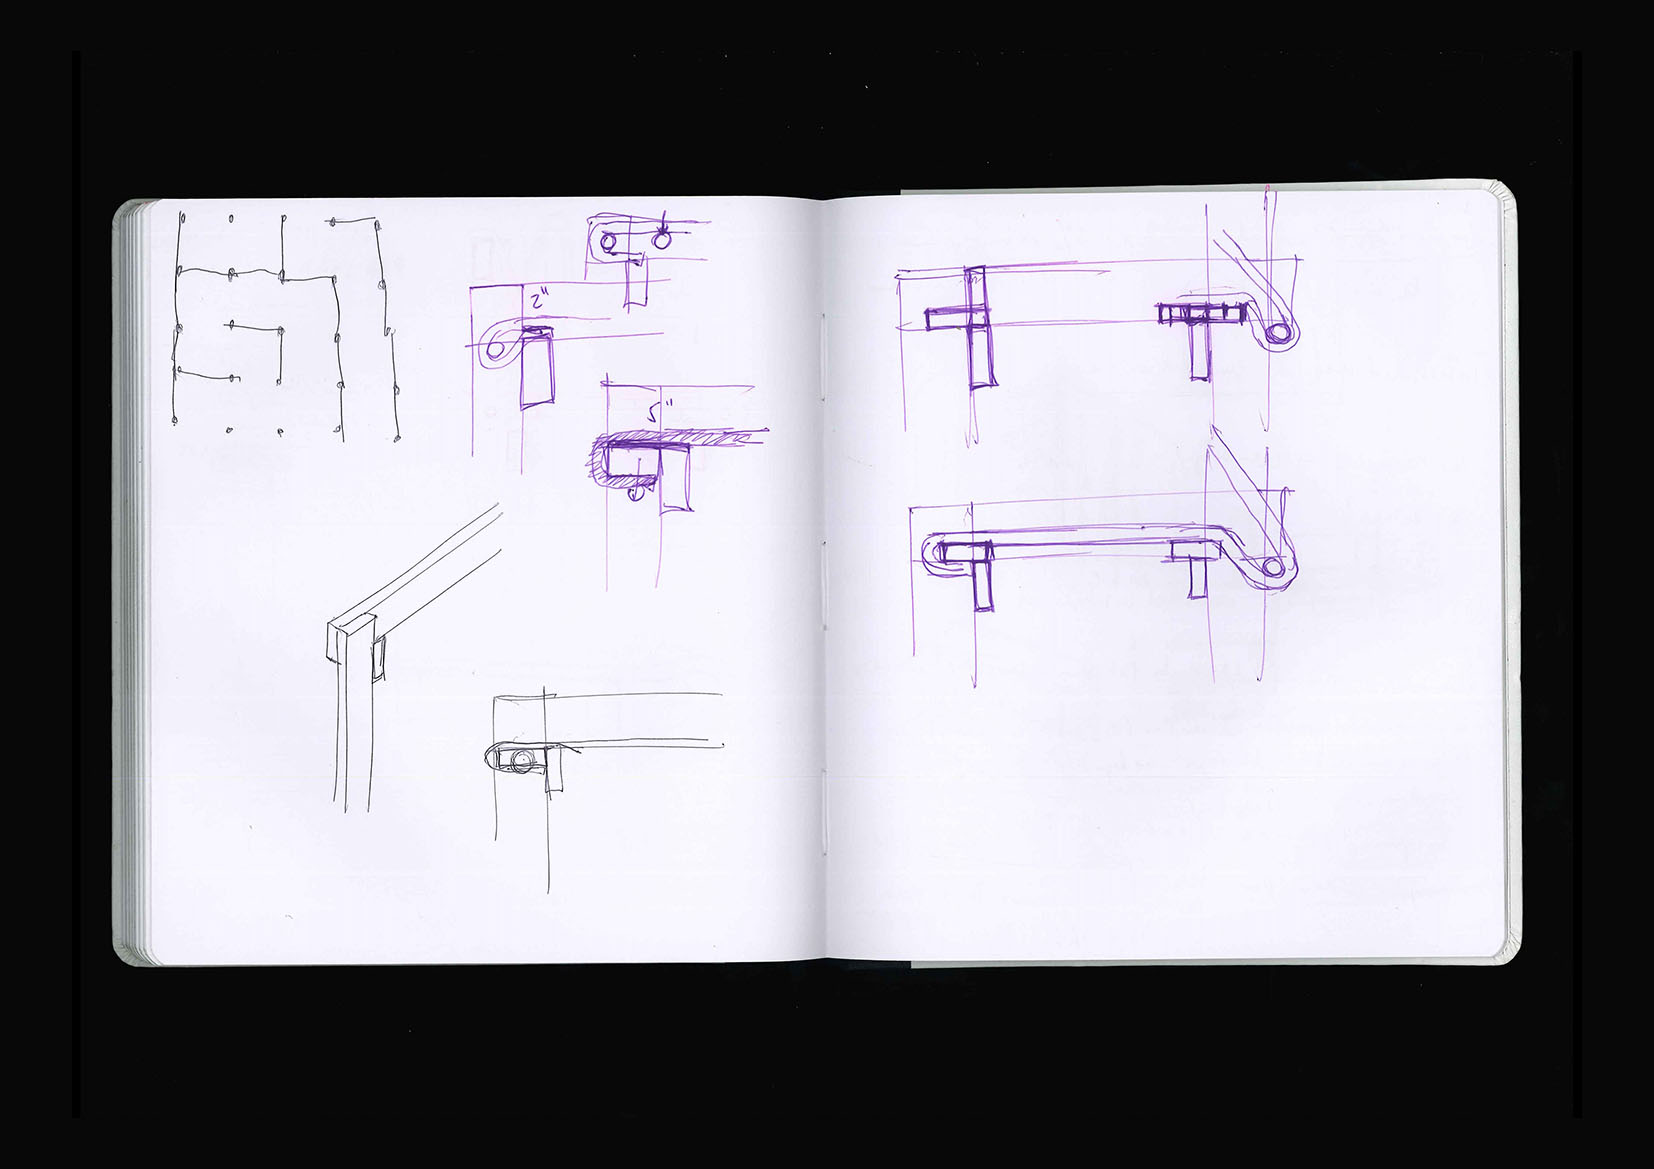 2"
5"